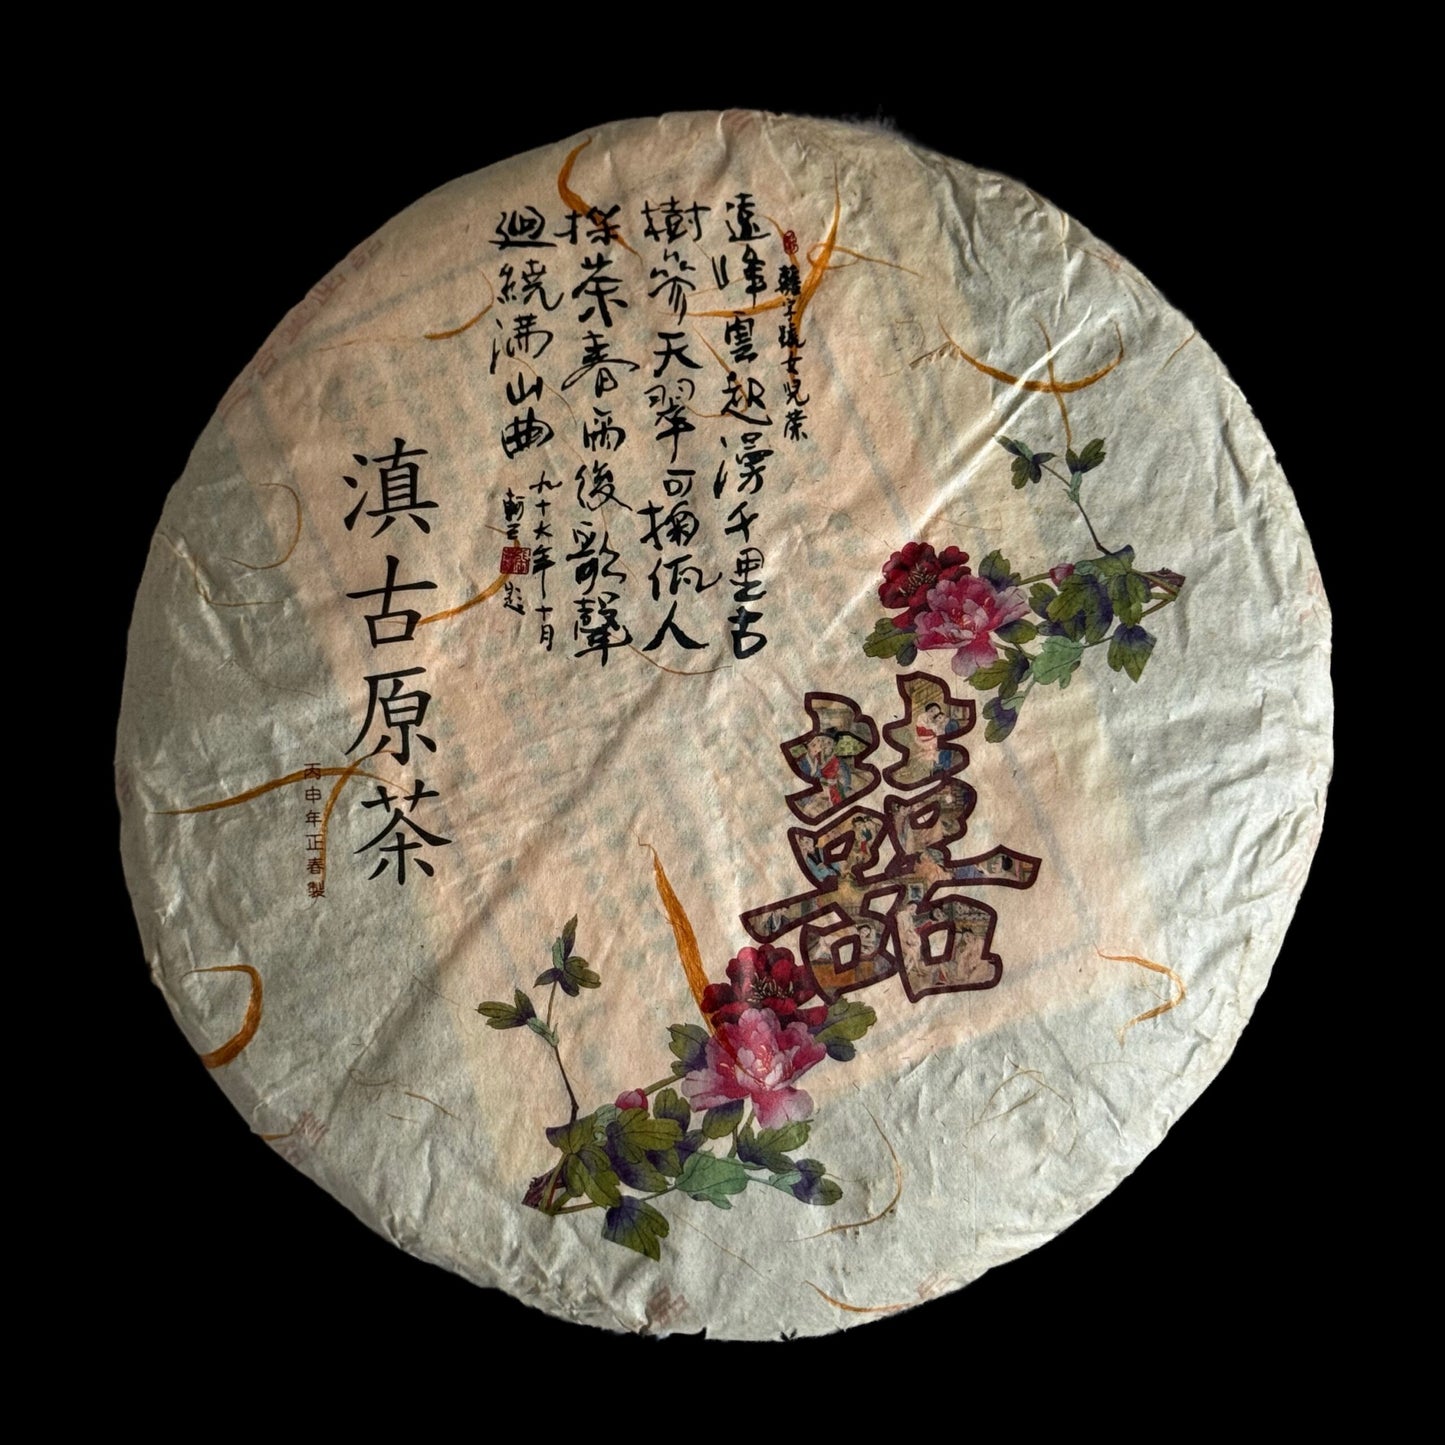 囍字號女兒茶
遠峰雲起漫千里古
樹參天翠可掬佤人
採茶春雨後歌聲
迴繞滿山曲
九十六年十月
題
滇古原茶
丙申年正春製
囍